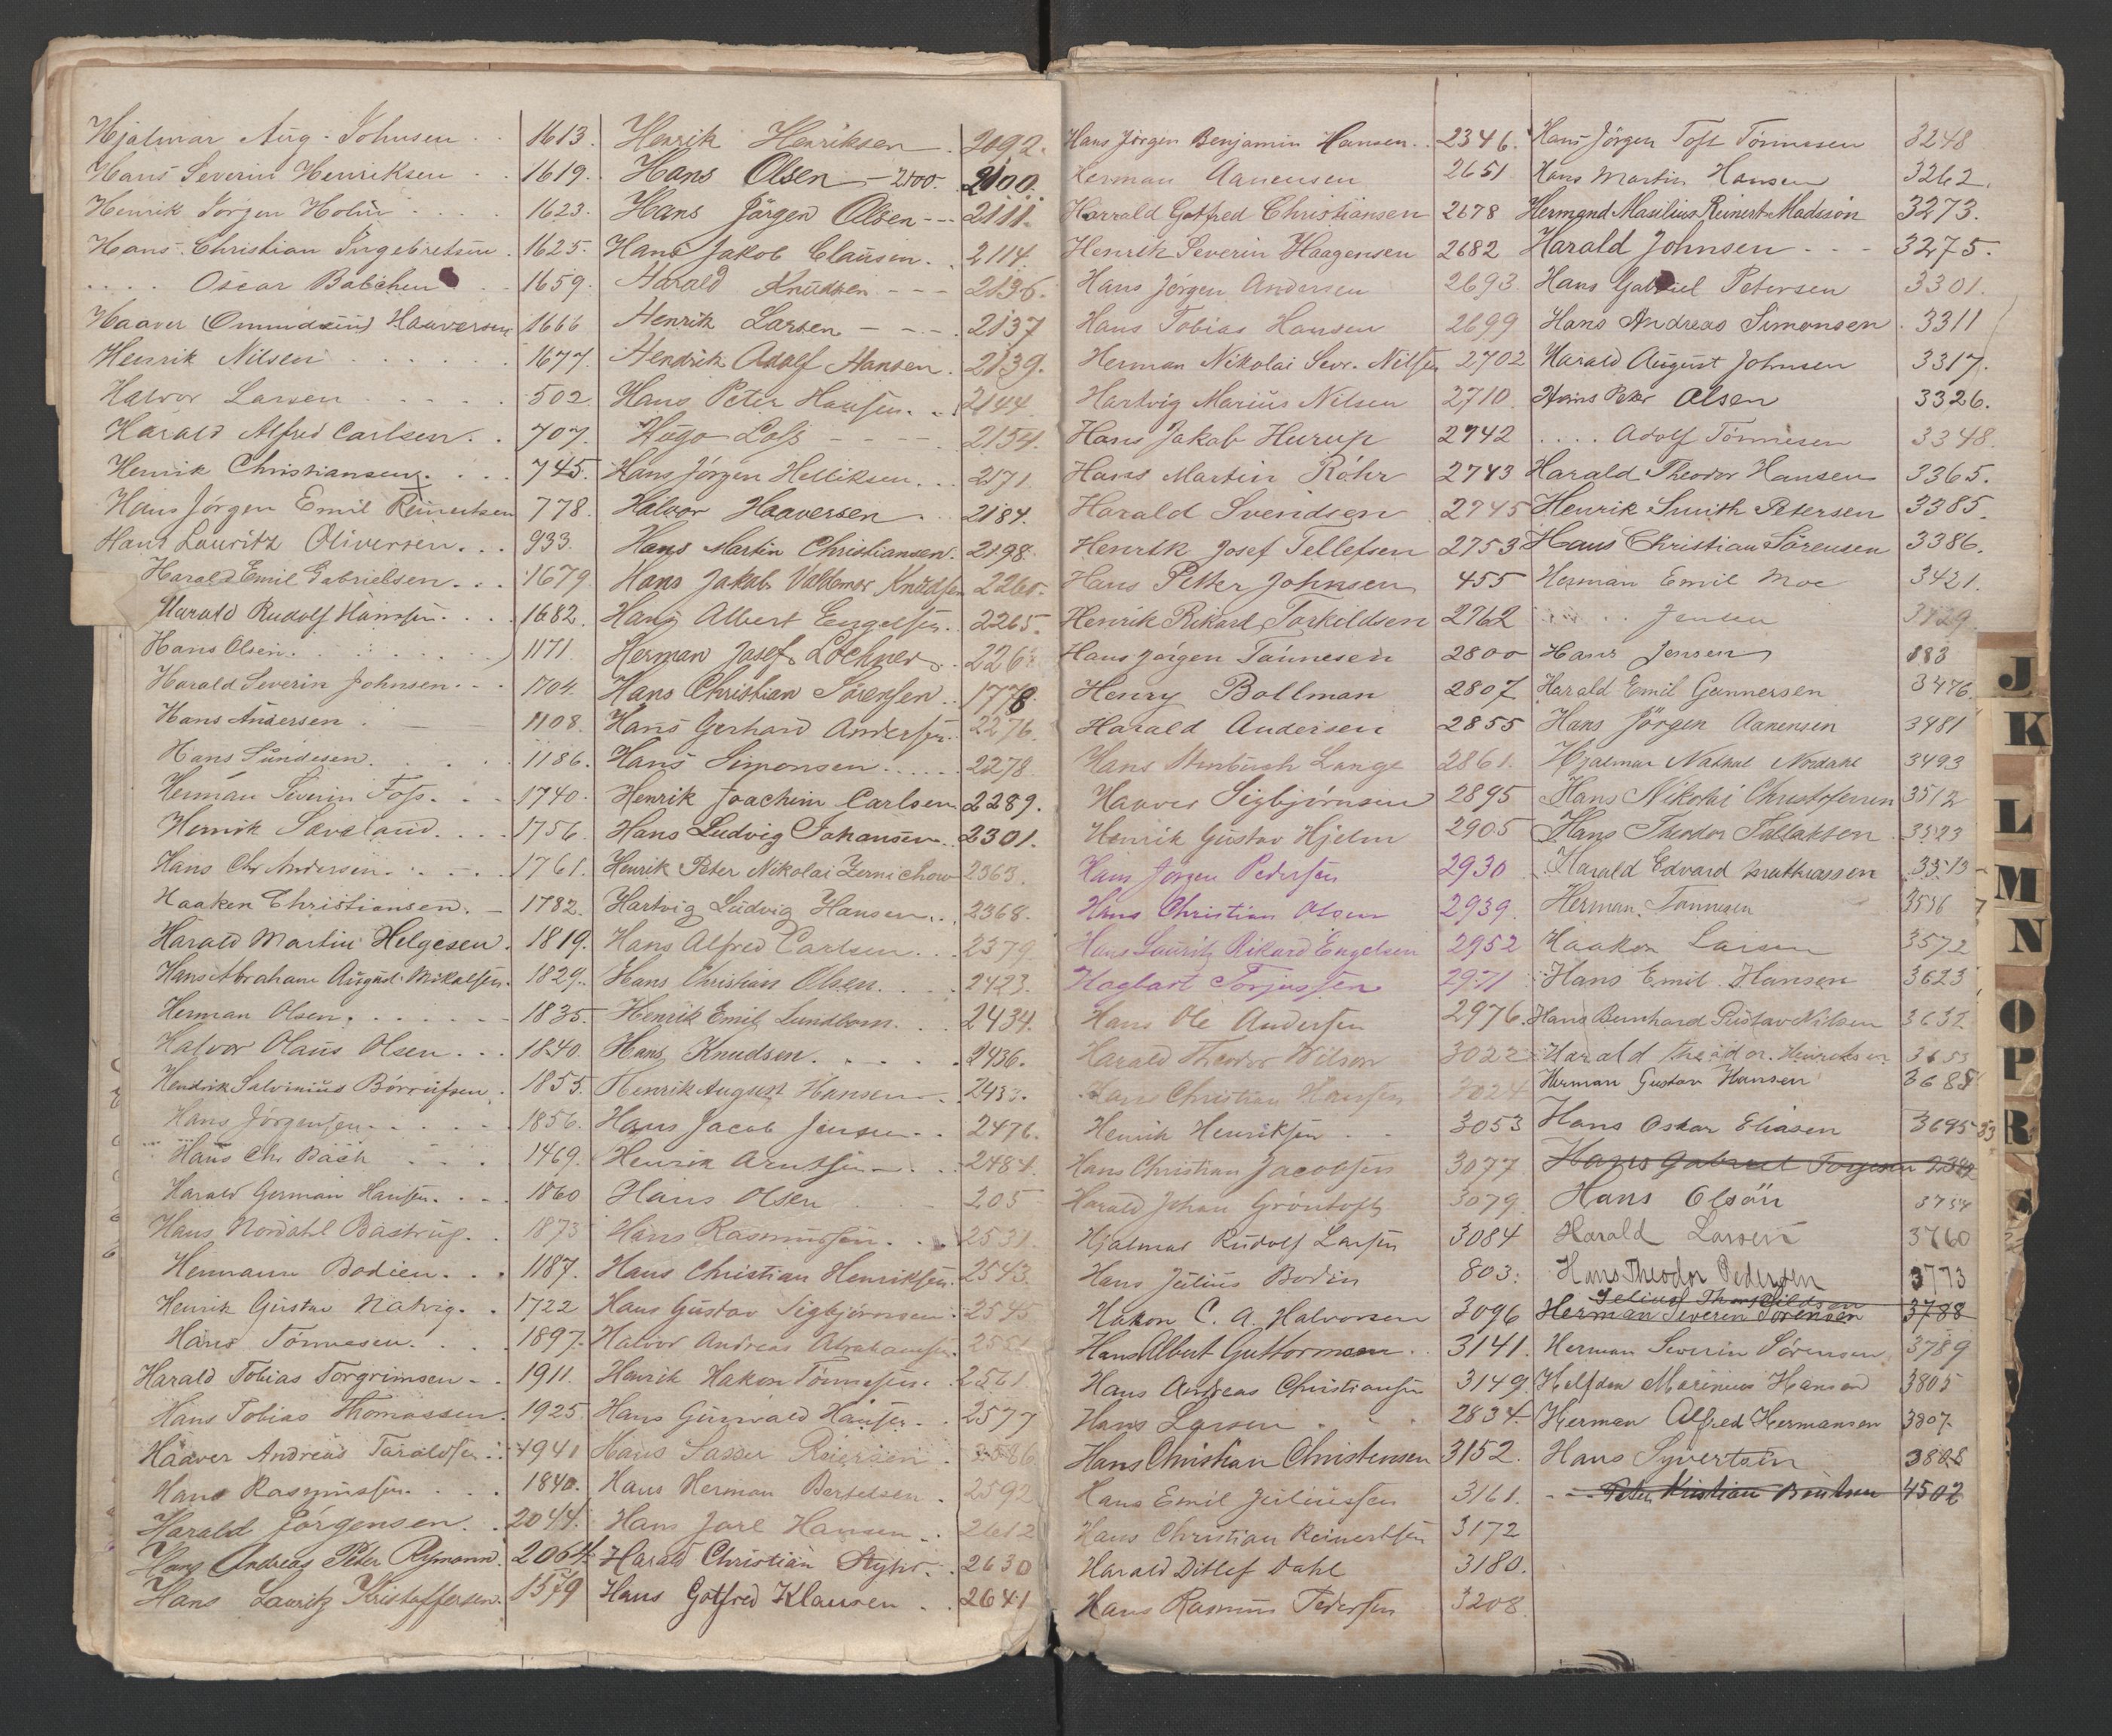 Hjalmar Aug. Johnsen . . 1613.
Hans Severin Henriksen . . 1619.
Henrik Jörgen Holm . . . . 1623.
Hans Christian Ingebretsen . 1625.
. . . . Oscar Babschen . . 1659.
Haaver (Omundsen) Haaversen 1666
Henrik Nilsen . . . . . . 1677.
Halvor Larsen . . . . . 502
Harald Alfred Carlsen . . 707.
Henrik Christiansen . . . 745.
Hans Jörgen Emil Reinertsen 778.
Hans Lauritz Oliversen . . . 933.
Harald Emil Gabrielsen . . . 1679
Harald Rudolf Hansen . . . . 1682.
Hans Olsen . . . . . . . 1171
Harald Severin Johnsen . . . 1704.
Hans Andersen . 1108.
Hans Sundesen . . . . . 1186.
Herman Severin Foss . . . 1740.
Henrik Sæveland . . . . 1756.
Hans Chr Andersen . . . . . 1761.
Haaken Christiansen . – 1782.
Harald Martin Helgesen . 1819.
Hans Abraham August Mikalsen . 1829.
Herman Olsen . . . . . . 1835.
Halvor Olaus Olsen . . . 1840.
Hendrik Salvinius Börrufsen . 1855.
Hans Jörgensen . . . . . . 1856.
Hans Chr Bach . . . . 1469.
Harald German Hansen . . . 1860
Hans Nordahl Bastrup . . 1873
Hermann Bodien . . . 1187.
Henrik Gustav Natvig . . 1722
Hans Tönnesen . . . 1897.
Harald Tobias Torgrimsen . . 1911.
Hans Tobias Thomassen . 1925.
Haaver Andreas Taraldsen . . 1941
Hans Rasmussen . . . . 1840.
Harald Jörgensen . . 2044.
Hans Andreas Peter Rymann . 2064.
Hans Lauritz Kristoffersen . 1579
Henrik Henriksen . 2092.
Hans Olsen – 2100. 2100.
Hans Jörgen Olsen – – – 2111.
Hans Jakob Clausen . . 2114.
Harald Knudsen – – – 2136.
Henrik Larsen – – – . 2137
Hendrik Adolf Hansen . 2139.
Hans Peter Hansen . . 2144.
Hugo Loss – – – – . 2154.
Hans Jörgen Helliksen . . . 2171.
Halvor Haaversen . 2184.
Hans Martin Christiansen . 2198.
Hans Jakob Valdemar Knudsen 2260.
Hans Albert Engelsen . . 2265.
Herman Josef Lochner . . 226
Hans Christian Sörensen . . 1778
Hans Gerhard Andersen . . 2276.
Hans Simonsen . . . . . 2278
Henrik Joachim Carlsen 2289.
Hans Ludvig Johansen . . 2301.
Henrik Peter Nikolai Zernichow 2363.
Hartvig Ludvig Hansen . . 2368.
Hans Alfred Carlsen . . . 2379
Hans Christian Olsen . . . . 2423.
Henrik Emil Lundbom . . . 2434.
Hans Knudsen . . . . . . 2436.
Henrik August Hansen . . 2433.
Hans Jacob Jensen . . 2476.
Henrik Arntsen . . . 2484.
Hans Olsen . . 205
Hans Rasmussen . . . 2531.
Hans Christian Henriksen . 2543.
Hans Gustav Sigbjörnsen . 2545
Halvor Andreas Abrahamsen . 255
Henrik Hakon Tönnesen . . 2561
Hans Gunvald Hansen . . 2577
Hans Sasser Reiersen . 2586
Hans Herman Bertelsen . 2592
Hans Jarl Hansen . . 2612
Harald Christian Styhr . . 2630
Hans Gotfred Klausen . . 2641
Hans Jörgen Benjamin Hansen . . 2346.
Herman Aanensen 2651
Harrald Gotfred Christiansen 2678
Henrik Severin Haagensen 2682
Hans Jörgen Andersen 2693.
Hans Tobias Hansen 2699
Herman Nikolai Sevr. Nilsen 2702
Hartvig Marius Nilsen 2710.
Hans Jakob Hurup 2742
Hans Martin Röhr 2743
Harald Svendsen 2745
Henrik Josef Tellefsen 2753
Hans Petter Johnsen 455
Henrik Rikard Torkildsen 2762
Hans Jörgen Tönnesen 2800
Henry Bollman 2807
Harald Andersen 2855
Hans Stenbuch Lange 2861.
Haaver Sigbjörnsen 2895
Henrik Gustav Hjelm 2905
Hans Jörgen Pedersen 2930
Hans Christian Olsen 2939.
Hans Lauritz Rikard Engelsen 2952
Hagbart Torjussen 2971
Hans Ole Andersen 2976.
Harald Theodor Wilson 3022
Hans Christian Hansen 3024
Henrik Henriksen . . 3053
Hans Christian Jacobsen 3077
Harald Johan Gröntoft 3079
Hjalmar Rudolf Larsen 3084
Hans Julius Bodin 803.
Hakon C. A. Halvorsen 3096
Hans Albert Guttormsen . . 3141.
Hans Andreas Christiansen 3149.
Hans Larsen . . . 2834.
Hans Christian Christensen 3152.
Hans Emil Juliussen 3161.
Hans Christian Reinertsen 3172
Harald Ditlef Dahl 3180.
Hans Rasmus Pedersen 3208.
Hans Jörgen Toft Tönnesen 3248
Hans Martin Hansen 3262.
Hermand Masilius Reinert Madsson 3273.
Harald Johnsen . . – 3275.
Hans Gabriel Petersen 3301.
Hans Andreas Simonsen . 3311
Harald August Johnsen 3317.
Hans Peter Olsen 3326.
. . . . Adolf Tönnesen 3348.
Harald Theodor Hansen 3365.
Henrik Smith Petersen 3385.
Hans Christian Sörensen 3386.
Herman Emil Moe 3421.
. . . . Jensen 3429
Hans Jensen 183
Harald Emil Gunnersen 3476.
Hans Jörgen Aanensen 3481
Hjalmar Nathal Nordahl 3493
Hans Nikolai Christofersen 3512
Hans Theodor Tallaksen . 3523
Harald Edvard Mathiassen 3513
Herman Tönnesen 3536
Haakon Larsen 3572
Hans Emil Hansen 3623
Hans Bernhard Gustav Nilsen 3632
Harald Theodor Henriksen 3653
Herman Gustav Hansen 3688
Hans Oskar Eliasen 3695
Hans Gabriel Torgersen
Hans Olsön 3754
Harald Larsen 3760
Hans Theodor Pedersen 3773
Jelius Thorkildsen
Herman Severin Sörensen 3788
Herman Severin Sörensen 3789
Halfdan Marinius Hansen 3805
Herman Alfred Hermansen 3807.
Hans Syvertsen 3808
– – Peter Kristian 4502
J
K
L
M
N
O
P
R
S